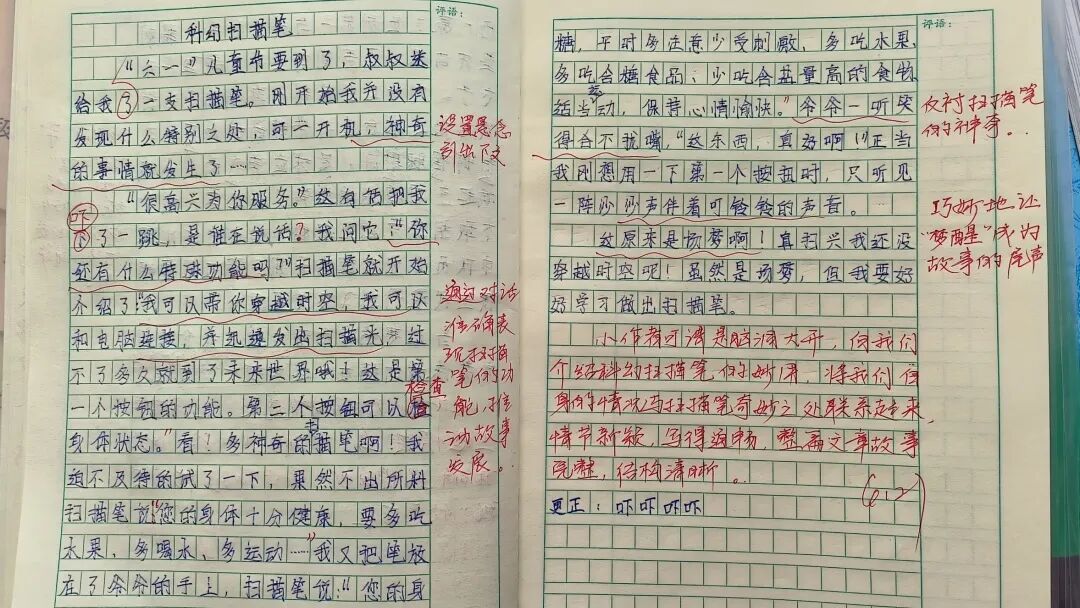 评语：
科幻扫描笔
“六一”儿童节要到了，叔叔送
给我了一支扫描笔。刚开始我并没有
发现什么特别之处，可一开机，神奇
的事情就发生了……
设置悬念
引出下文
“很高兴为你服务。”这句话把我
吓
了一跳，是谁在说话？我问它：“你
还有什么特殊功能吗？”扫描笔就开始
介绍了“我可以带你穿越时空，我可以
和电脑连接，并把我发出扫描光，过
不了多久就到了未来世界哦！这是第
一个按钮的功能。第二个按钮可以检查
身体状态。”看！多神奇的扫描笔啊！我
迫不及待的试了一下，果然不出所料
扫描笔说“您的身体十分健康，要多吃
水果、多喝水、多运动……”我又把笔放
在了爷爷的手上，扫描笔说：“您的身
通过对话
准确表
现扫描
笔的功
能，推
动故事
发展。
评语：
糖，平时多注意少受刺激，多吃水果，
多吃含糖食品，少吃含盐量高的食物
适当劳动，保持心情愉快。”爷爷一听笑
得合不拢嘴，“这东西，真好啊！”正当
我刚想用一下第一个按扭时，只听见
一阵沙沙声伴着叮铃铃的声音。
这原来是场梦啊！真扫兴我还没
穿越时空呢！虽然是场梦，但我要好
好学习做出扫描笔。
反衬扫描笔
的神奇。
巧妙地让
“梦醒”成为
故事的尾声
小作者可谓是脑洞大开，向我们
介绍科幻扫描笔的妙用，将我们自
身的情况与扫描笔奇妙之处联系起来，
情节新颖，写得通畅，整篇文章故事
完整，结构清晰。
更正：吓吓吓吓